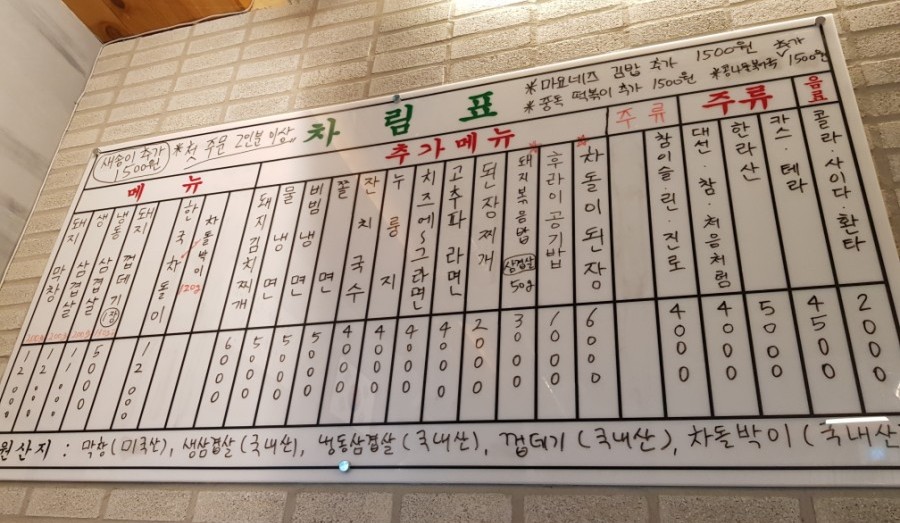 차림표
새송이 추가 1500원
*첫 주문 2인분 이상
*마요네즈 김밥 추가 1500원
*콩나물북어국 추가 1500원
*중독 떡볶이 추가 1500원
메뉴
추가메뉴
주류
주류
음료
돼지 막창
생 삼겹살
냉동 삼겹살
돼지 껍데기 (1장)
한국 차돌이
차돌박이 120g
돼지김치찌개 6000
물냉면 5000
비빔냉면 5000
쫄면 5000
잔치국수 4000
누룽지 4000
치즈에~그라면 4000
고추파라면 4000
된장찌개 2000
돼지볶음밥 삼겹살 50g 3000
후라이공기밥 1000
차돌이된장 6000
참이슬·린·진로 4000
대선·참·처음처럼 4000
한라산 5000
카스·테라 4500
콜라·사이다·환타 2000
원산지 : 막창(미국산), 생삼겹살(국내산), 냉동삼겹살(국내산), 껍데기(국내산), 차돌박이(국내산